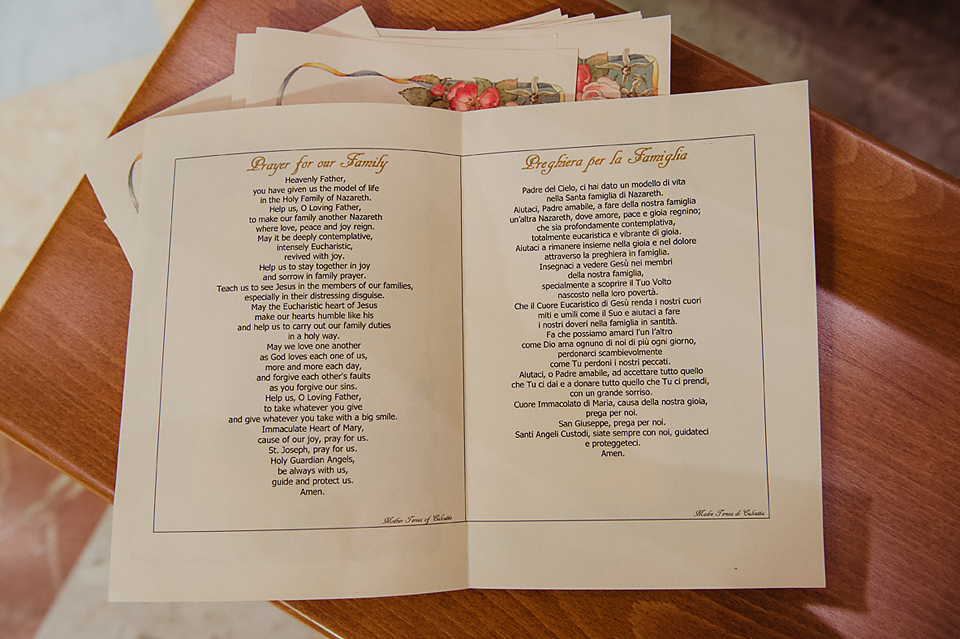 Prayer for our Family
Heavenly Father,
you have given us the model of life
in the Holy Family of Nazareth.
Help us, O Loving Father,
to make our family another Nazareth
where love, peace and joy reign.
May it be deeply contemplative,
intensely Eucharistic,
revived with joy.
Help us to stay together in joy
and sorrow in family prayer.
Teach us to see Jesus in the members of our families,
especially in their distressing disguise.
May the Eucharistic heart of Jesus
make our hearts humble like his
and help us to carry out our family duties
in a holy way.
May we love one another
as God loves each one of us,
more and more each day,
and forgive each other's faults
as you forgive our sins.
Help us, O Loving Father,
to take whatever you give
and give whatever you take with a big smile.
Immaculate Heart of Mary,
cause of our joy, pray for us.
St. Joseph, pray for us.
Holy Guardian Angels,
be always with us,
guide and protect us.
Amen.
Mother Teresa of Calcutta
Preghiera per la Famiglia
Padre del Cielo, ci hai dato un modello di vita
nella Santa famiglia di Nazareth.
Aiutaci, Padre amabile, a fare della nostra famiglia
un'altra Nazareth, dove amore, pace e gioia regnino;
che sia profondamente contemplativa,
totalmente eucaristica e vibrante di gioia.
Aiutaci a rimanere insieme nella gioia e nel dolore
attraverso la preghiera in famiglia.
Insegnaci a vedere Gesù nei membri
della nostra famiglia,
specialmente a scoprire il Tuo Volto
nascosto nella loro povertà.
Che il Cuore Eucaristico di Gesù renda i nostri cuori
miti e umili come il Suo e aiutaci a fare
i nostri doveri nella famiglia in santità.
Fa che possiamo amarci l'un l'altro
come Dio ama ognuno di noi di più ogni giorno,
perdonarci scambievolmente
come Tu perdoni i nostri peccati.
Aiutaci, o Padre amabile, ad accettare tutto quello
che Tu ci dai e a donare tutto quello che Tu ci prendi,
con un grande sorriso.
Cuore Immacolato di Maria, causa della nostra gioia,
prega per noi.
San Giuseppe, prega per noi.
Santi Angeli Custodi, siate sempre con noi, guidateci
e proteggeteci.
Amen.
Madre Teresa di Calcutta